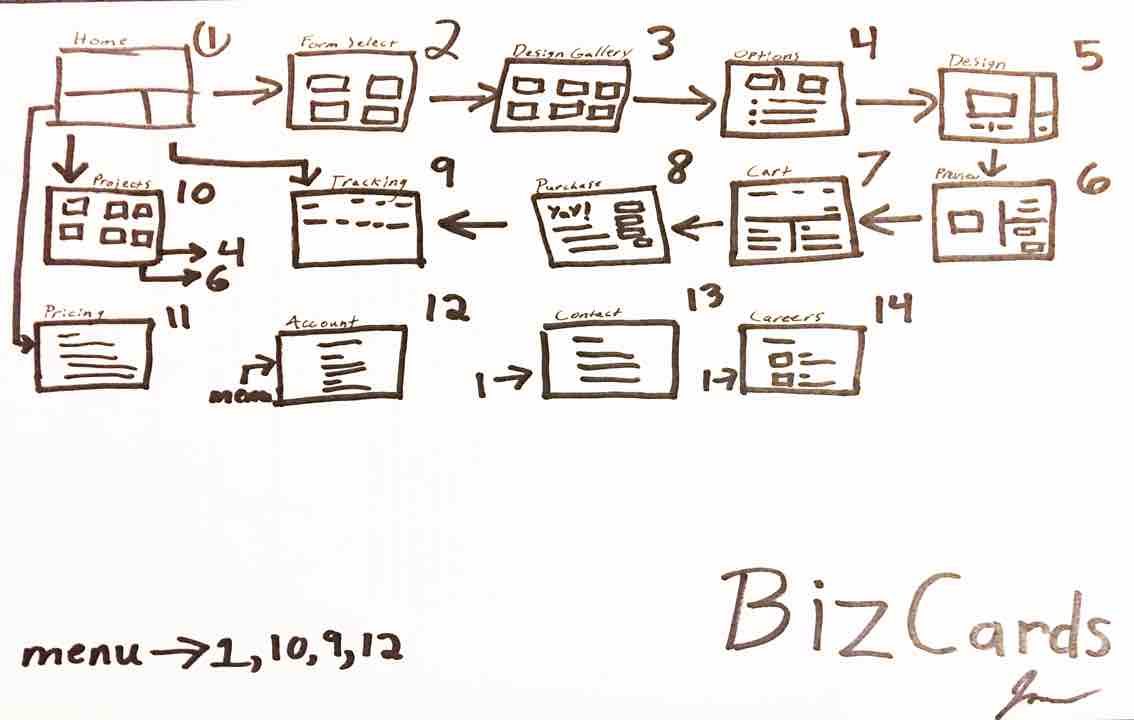 Home 1
Form Select 2
Design Gallery 3
Options 4
Design 5
Preview 6
Cart 7
Purchase 8
YaY!
Tracking 9
Projects 10
4
6
Pricing 11
Account 12
menu
Contact 13
1
Careers 14
1
menu → 1, 10, 9, 12
BizCards